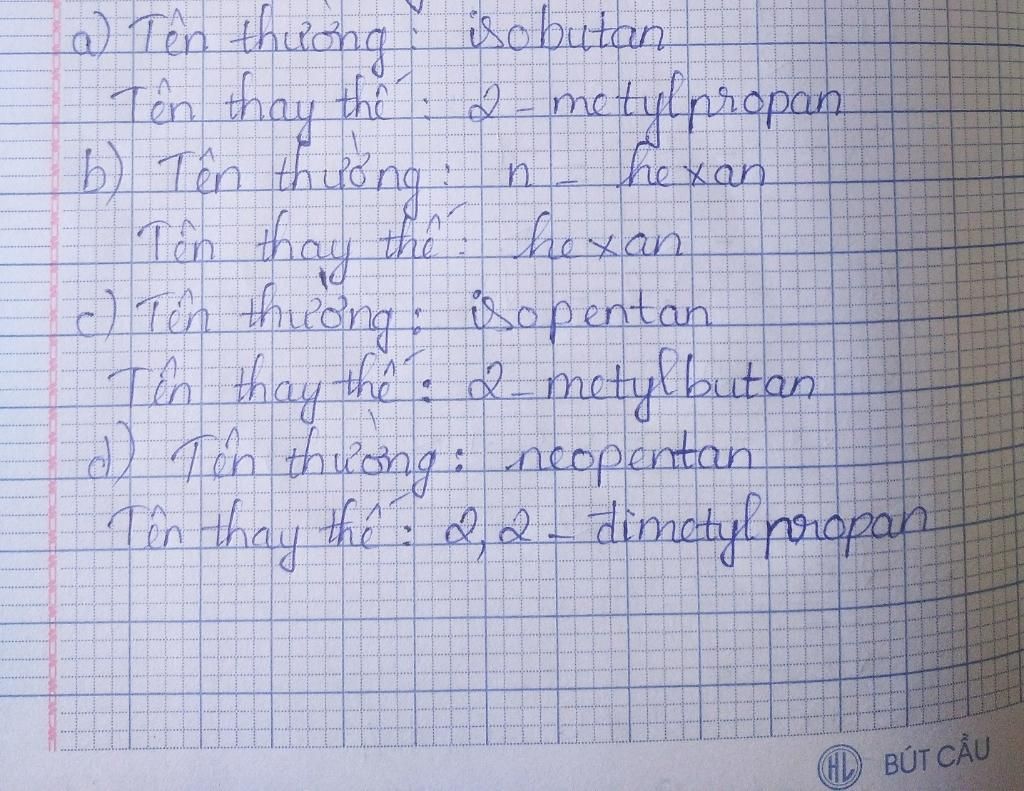 a) Tên thường : isobutan
Tên thay thế : 2 - metylpropan
b) Tên thường : n - hexan
Tên thay thế : hexan
c) Tên thường : isopentan
Tên thay thế : 2 - metylbutan
d) Tên thường : neopentan
Tên thay thế : 2,2 - dimetylpropan
HL BÚT CẦU